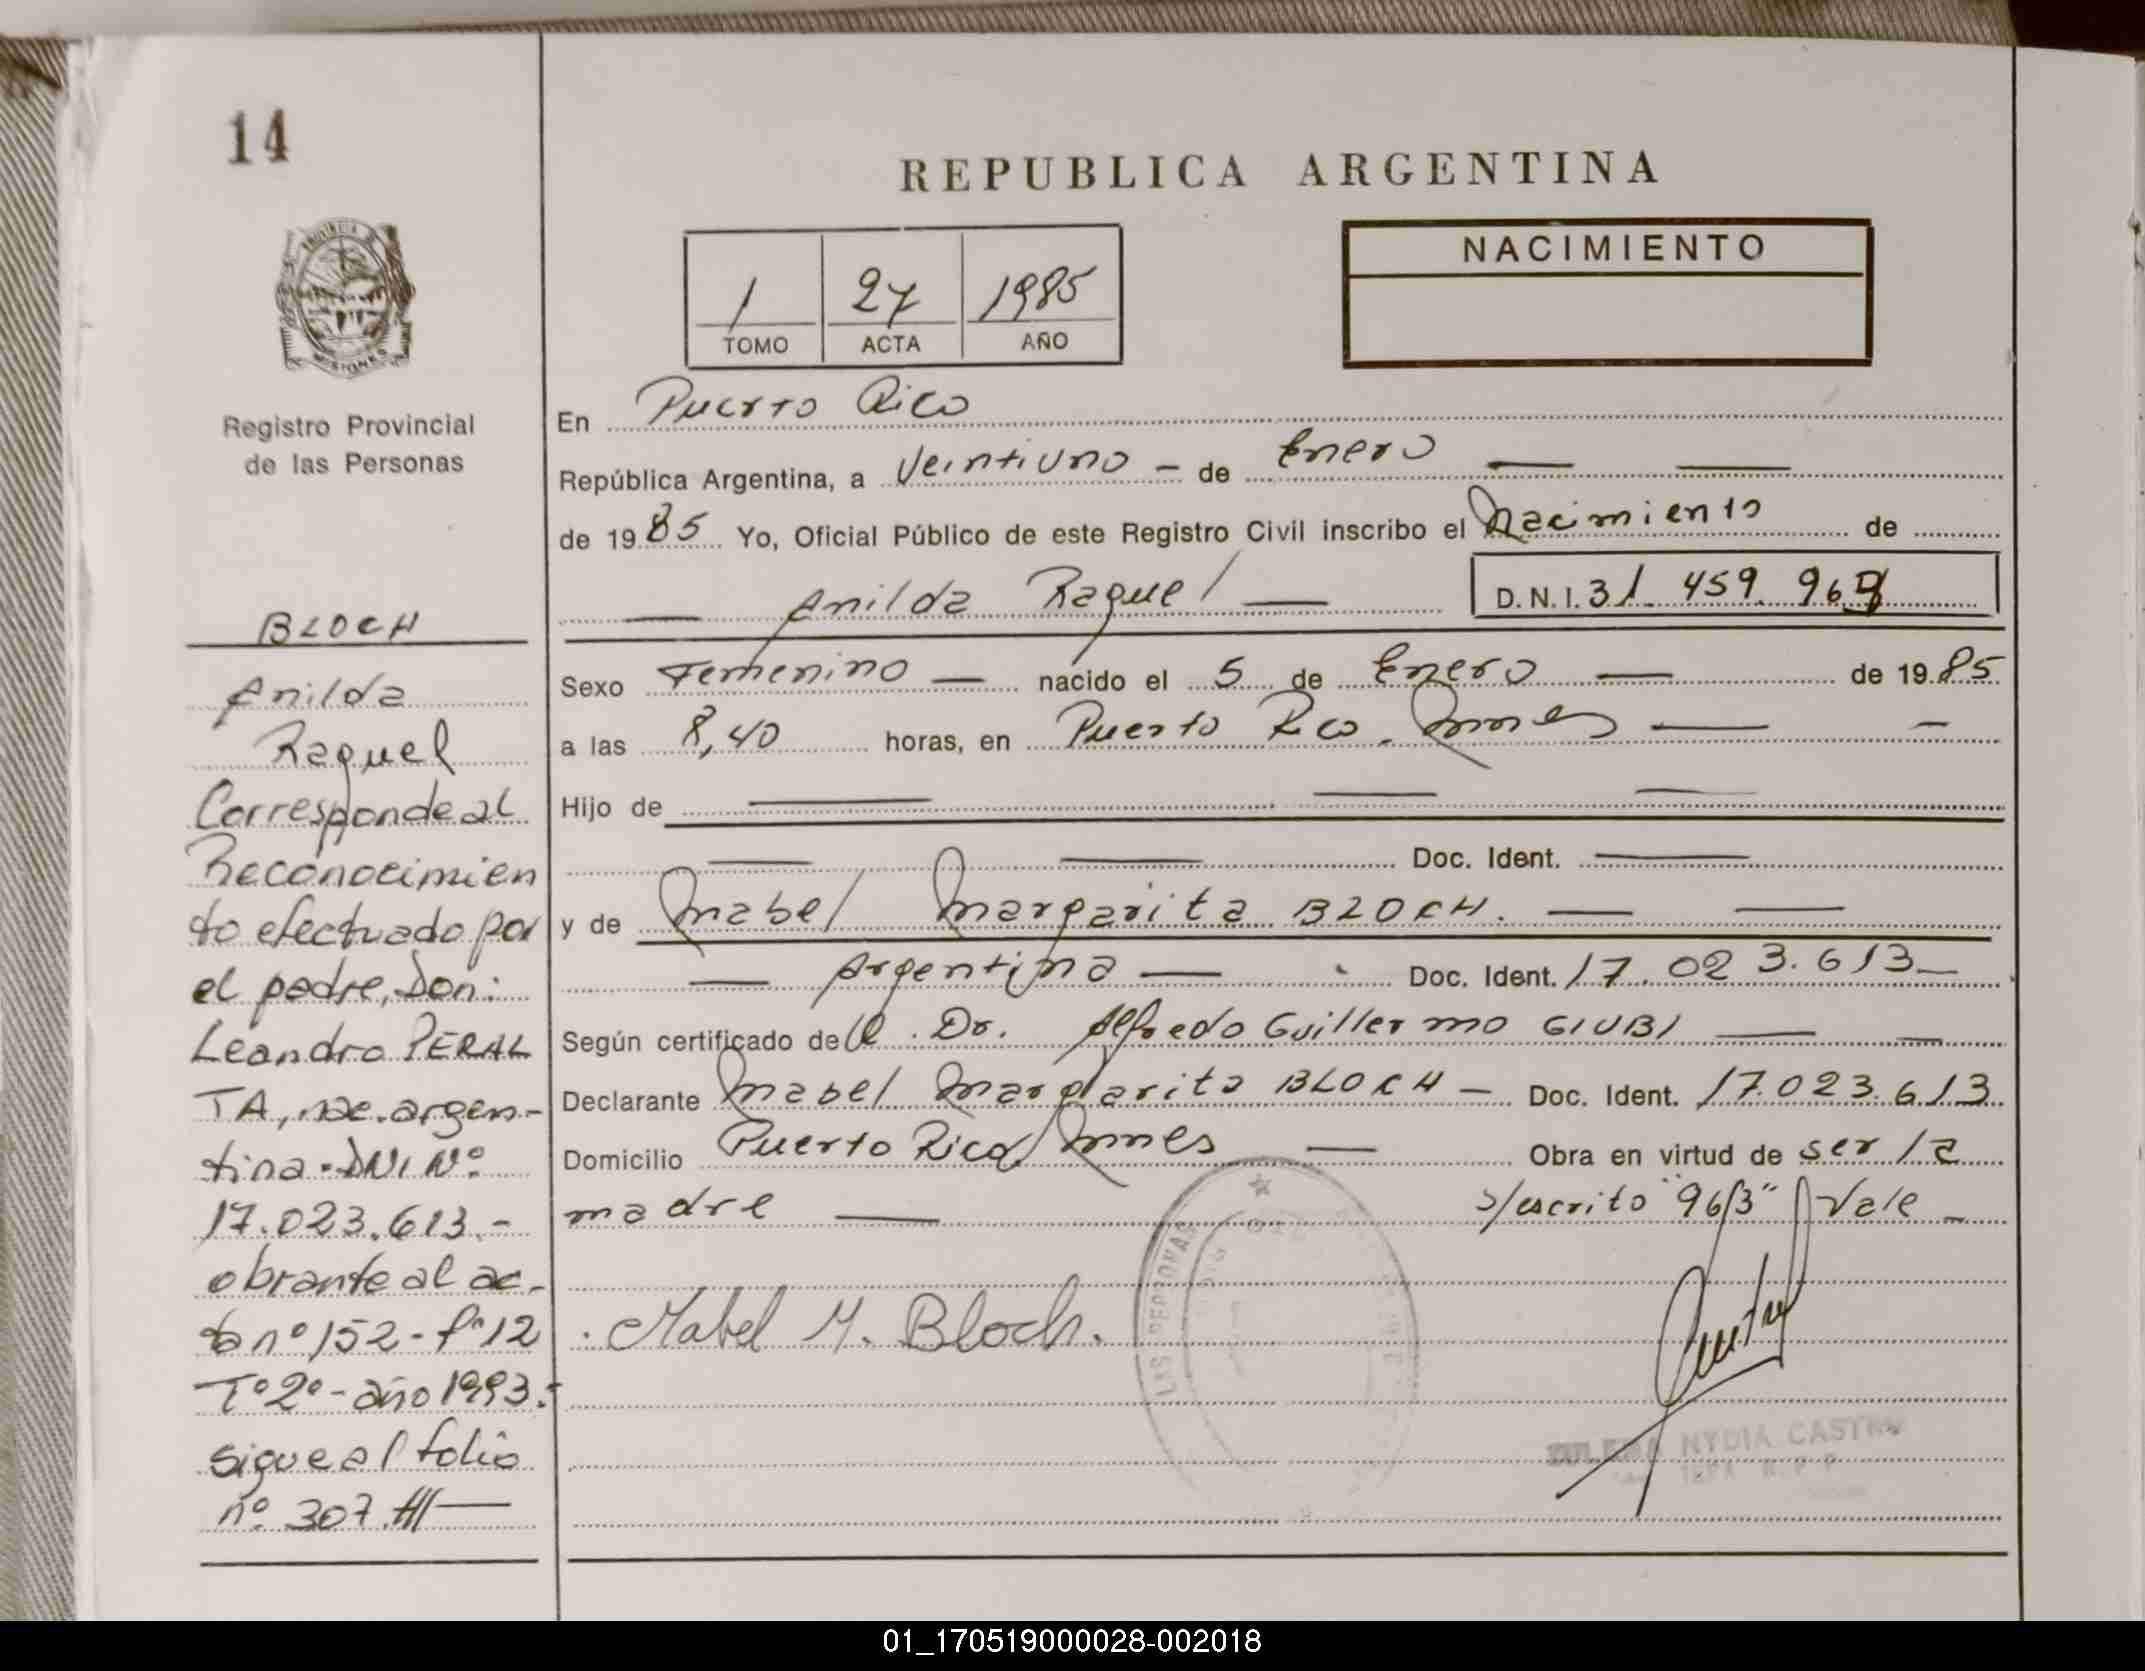 14
REPUBLICA ARGENTINA
NACIMIENTO
1 27 1985
TOMO ACTA AÑO
Registro Provincial
de las Personas
BLOCH
Anilda
Raquel
Corresponde al
Reconocimien
to efectuado por
el padre, Don:
Leandro PERAL
TA, nac. argen-
tina - DNI Nº
17.023.613.-
obrante al ac-
ta nº 152 - fº 12
Tº 2º - año 1993.-
sigue al folio
nº 307.
En Puerto Rico
República Argentina, a Veintiuno - de Enero
de 1985 Yo, Oficial Público de este Registro Civil inscribo el Nacimiento de
Anilda Raquel D.N.I. 31 459
Sexo Femenino nacido el 5 de Enero de 1985
a las 8,40 horas, en Puerto Rico. Mnes
Hijo de
Doc. Ident.
y de Mabel Margarita BLOCH.
Argentina Doc. Ident. 17.023.613
Según certificado del Dr. Alfredo Guillermo GIUBI
Declarante Mabel Margarita BLOCH - Doc. Ident. 17.023.613
Domicilio Puerto Rico, Mnes Obra en virtud de ser la
madre s/escrito "96/3" Vale
Mabel M. Bloch.
LAS PERSONAS
NYDIA CASTRO
01_170519000028-002018